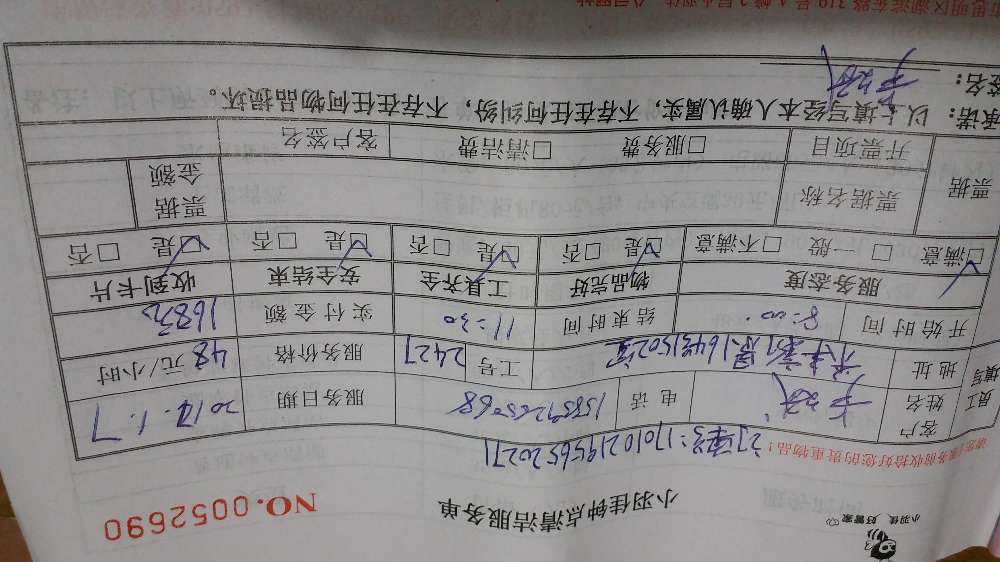 小羽佳 好管家
小羽佳钟点清洁服务单
NO.0052690
请您在服务前收拾好您的贵重物品!
订单号:1701021956520271
员工填写
客户姓名
电话 15859265068
服务日期 2017.1.7
地址
工号 2427
服务价格 48 元/小时
开始时间 8:00
结束时间 11:30
实付金额 168元
服务态度 物品完好 工具齐全 安全结束 收到卡片
☑满意 □一般 □不满意 ☑是 □否 ☑是 □否 ☑是 □否 ☑是 □否
票据 票据名称 票据金额
开票项目 □服务费 □清洁费 客户签名
承诺:以上填写经本人确认属实,不存在任何纠纷,不存在任何物品损坏。
签名: